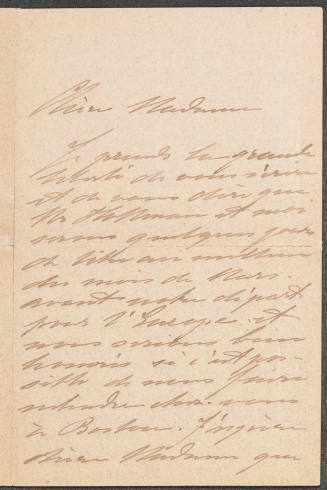 Chère Madame
Je prends la grande
liberté de vous écrire
et de vous dire que
Mr Hollman et moi
serons quelques jours
de libre au milieu
du mois de Mars
avant notre départ
pour l'Europe et
nous serions bien
honorés si c'est pos-
sible de nous faire
entendre chez vous
à Boston. J'espère
chère Madame que